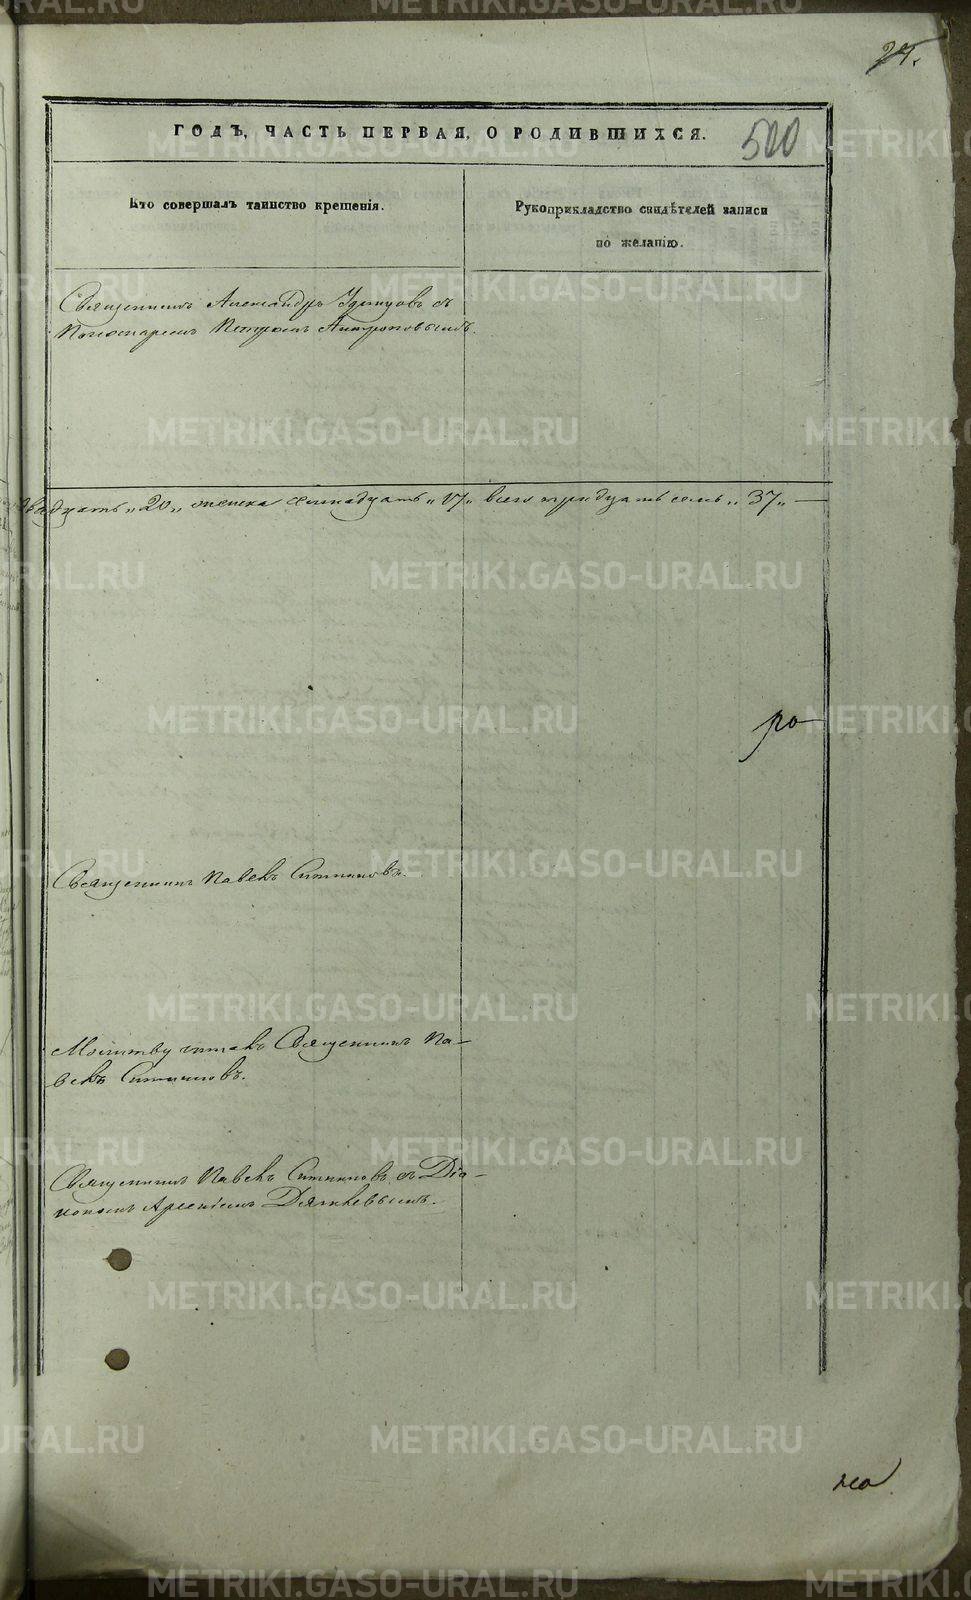 24.
ГОДЪ, ЧАСТЬ ПЕРВАЯ, О РОДИВШИХСЯ.
500
Кто совершалъ таинство крещенія.
Рукоприкладство свидѣтелей записи
по желанію.
Священникъ Александръ Удинцовъ съ
Пономаремъ Петромъ Антроповымъ.
двадцать „20„ женска семнадцать „17„ всего тридцать семь „37„ —
ро
Священникъ Павелъ Ситниковъ.
Молитву читалъ Священникъ Па-
велъ Ситниковъ.
Священникъ Павелъ Ситниковъ съ Діа-
кономъ Арсеніемъ Дягилевымъ.
METRIKI.GASO-URAL.RU